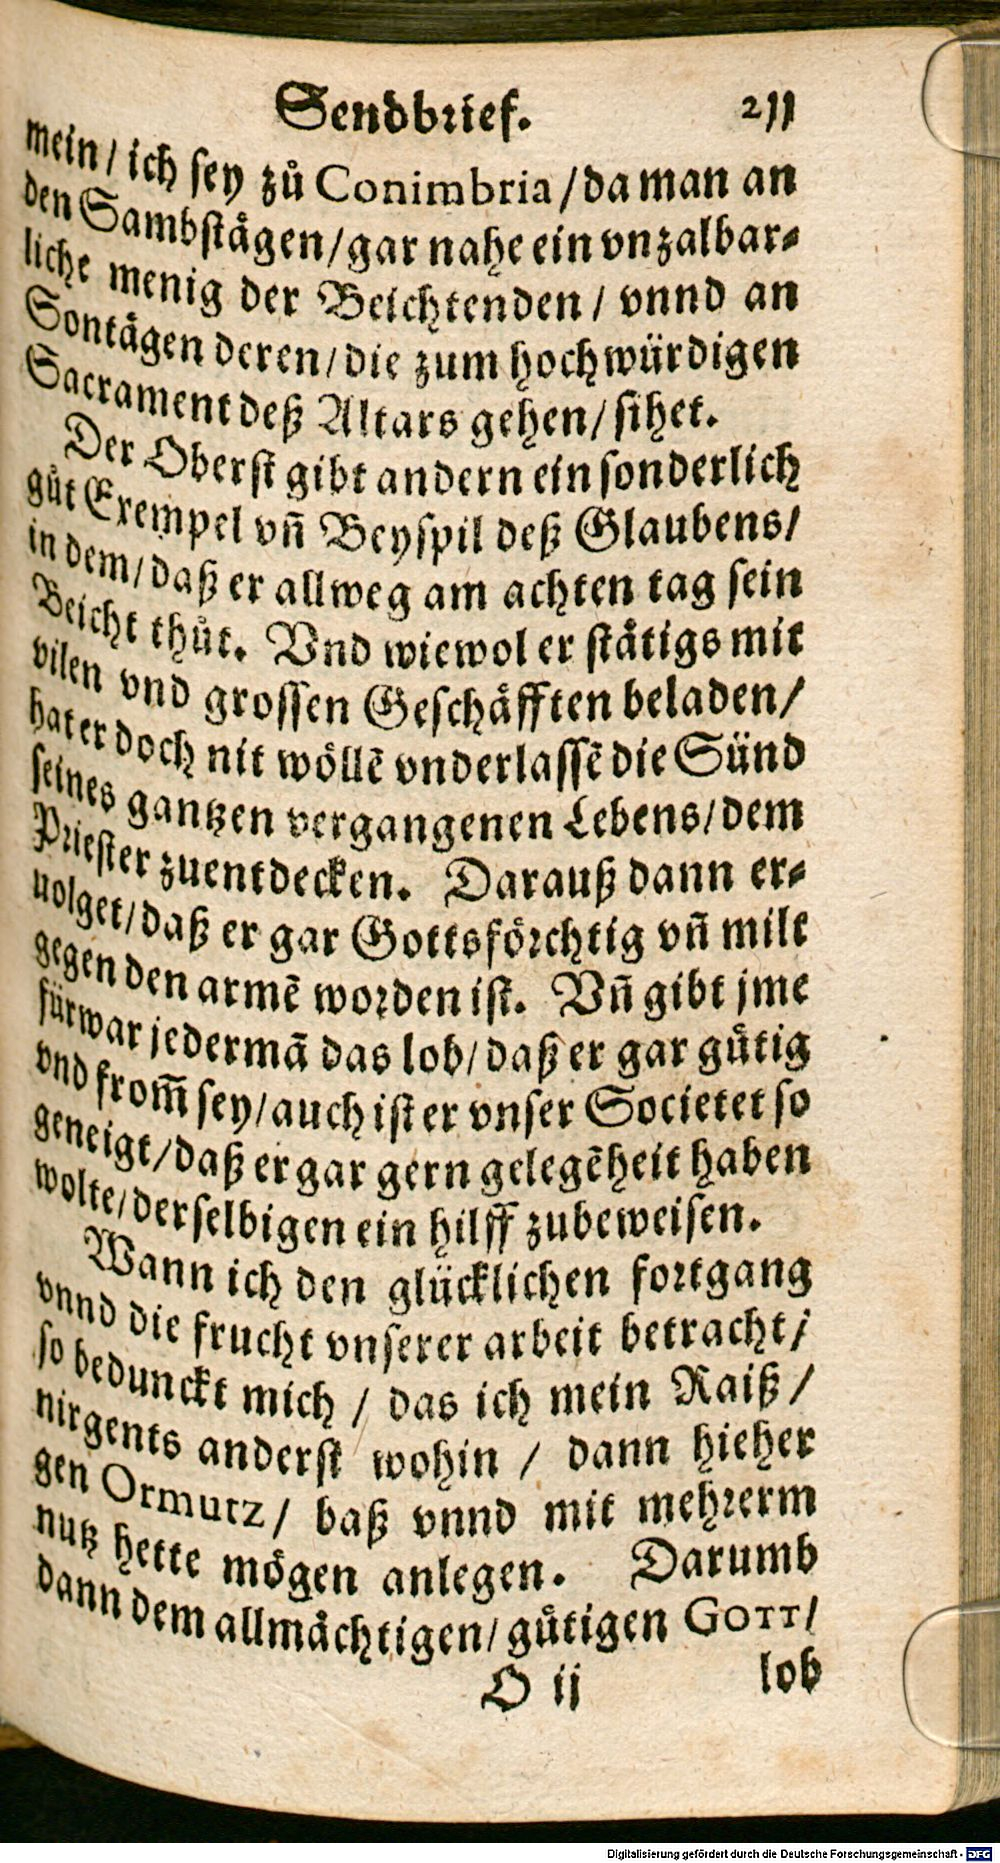 Sendbrief. 211
mein/ ich sey zů Conimbria/da man an
den Sambstägen/gar nahe ein vnzalbar-
liche menig der Beichtenden/ vnnd an
Sontägen deren/die zum hochwürdigen
Sacrament deß Altars gehen/sihet.
Der Oberst gibt andern ein sonderlich
gůt Exempel vñ Beyspil deß Glaubens/
in dem/daß er allweg am achten tag sein
Beicht thůt. Vnd wiewol er stätigs mit
vilen vnd grossen Geschäfften beladen/
hat er doch nit wöllẽ vnderlassẽ die Sünd
seines gantzen vergangenen Lebens/dem
Priester zuentdecken. Darauß dann er-
uolget/daß er gar Gottsförchtig vñ milt
gegen den armẽ worden ist. Vñ gibt jme
fürwar jedermã das lob/daß er gar gůtig
vnd from̃ sey/auch ist er vnser Societet so
geneigt/daß er gar gern gelegẽheit haben
wolte/derselbigen ein hilff zubeweisen.
Wann ich den glücklichen fortgang
vnnd die frucht vnserer arbeit betracht/
so bedunckt mich / das ich mein Raiß /
nirgents anderst wohin / dann hieher
gen Ormutz/ baß vnnd mit mehrerm
nutz hette mögen anlegen. Darumb
dann dem allmächtigen/gůtigen GOTT/
O ij lob
Digitalisierung gefördert durch die Deutsche Forschungsgemeinschaft - DFG